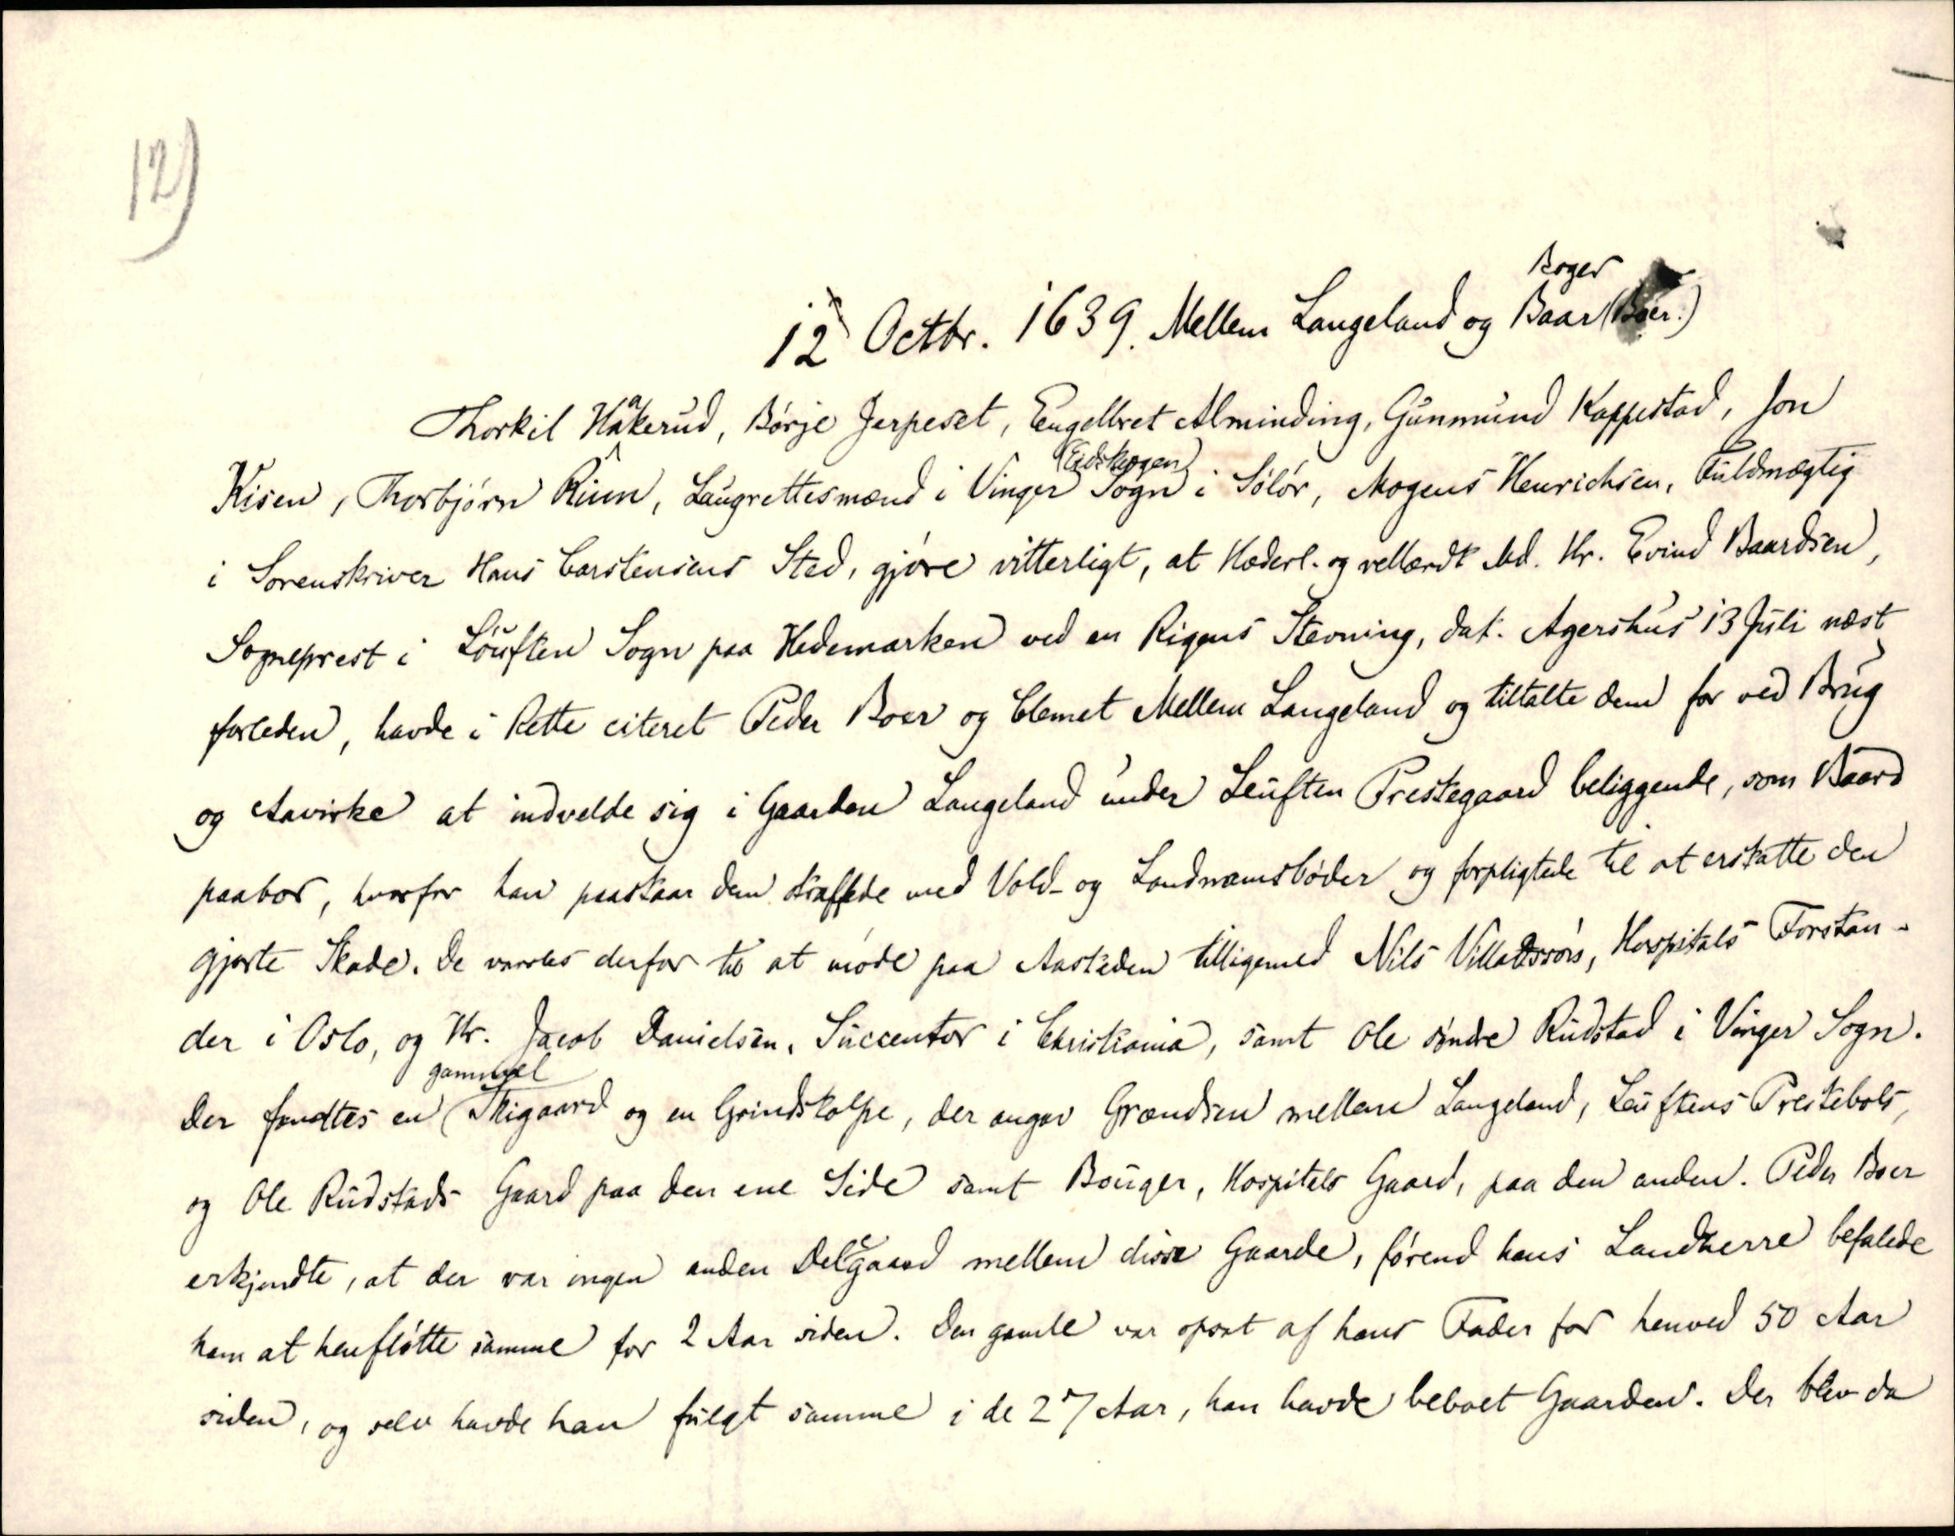 12)
Boger
12 Octbr. 1639. Mellem Langeland og Baar (Boer.)
Thorkil Håkerud, Børje Jerpeset, Engelbret Alminding, Gunmund Kappestad, Jon
(Eidskogen)
Kisen, Thorbjørn Rûnn, Laugrettesmænd i Vinger Sogn i Solør, Mogens Henrichsen, Fuldmægtig
i Sorenskriver Hans Carstensens Sted, gjøre vitterligt, at Hæderl. og vellærdt Md. Hr. Evind Baardsen,
Sogneprest i Løuften Sogn paa Hedemarken ved en Rigens Stevning, dat. Agershus 13 Juli næst
forleden, havde i Rette citeret Peder Boer og Clemet Mellem Langeland og tiltalte dem for ved Brug
og Aavirke at indvelde sig i Gaarden Langeland under Leuften Prestegaard beliggende, som Baard
paabor, hvorfor han paastaar dem straffede med Vold- og Landnamsbøder og forpligtede til at erstatte den
gjorte Skade. De varsles derfor til at møde paa Aasteden tilligemed Nils Villadssøn, Hospitals Forstan-
der i Oslo, og Hr. Jacob Danielsen, Succentor i Christiania, samt Ole søndre Rudstad i Vinger Sogn.
gammel
Der fandtes en Skigaard og en Grindstolpe, der angav Grændsen mellem Langeland, Leuftens Prestebols,
og Ole Rudstads Gaard paa den ene Side samt Bouger, Hospitals Gaard, paa den anden. Peder Boer
erkjendte, at der var ingen anden Delegaard mellem disse Gaarde, førend hans Landherre befalede
ham at henfløtte samme for 2 Aar siden. Den gamle var opsat af hans Fader for henved 50 Aar
siden, og selv havde han fulgt samme i de 27 Aar, han havde beboet Gaarden. Der blev da